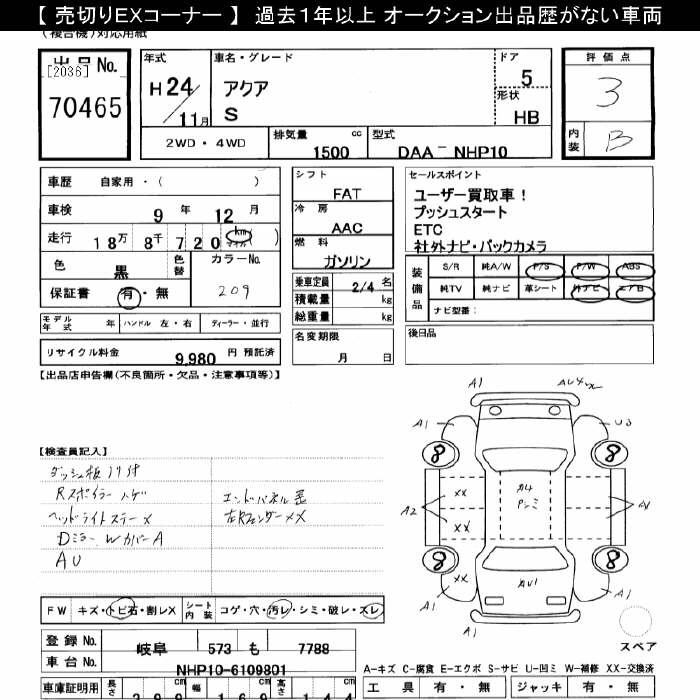 【 売切りEXコーナー 】 過去1年以上 オークション出品歴がない車両
(複合機)対応用紙
出品No.
[2036]
70465
年式
H24/11月
車名・グレード
アクア
S
ドア
5
形状
HB
評価点
3
内装
B
2WD・4WD
排気量 cc
1500
型式
DAA－NHP10
車歴 自家用・( )
車検 9年 12月
走行 18万 8千 720 km マイル ( )
色 黒
色替
カラーNo.
209
保証書 有・無
シフト
FAT
冷房
AAC
燃料
ガソリン
乗車定員 2/4 名
積載量 kg
総重量 kg
名変期限
月 日
セールスポイント
ユーザー買取車！
プッシュスタート
ETC
社外ナビ・バックカメラ
装備品
S/R 純A/W P/S P/W ABS
純TV 純ナビ 革シート 外ナビ エアB
ナビ型番：
モデル年式 年 ハンドル 左・右 ディーラー・並行
リサイクル料金 9,980 円 預託済
後日品
【出品店申告欄(不良箇所・欠品・注意事項等)】
【検査員記入】
Rスポイラー ハゲ
ヘッドライトステーメ
Dミラー、WカバーA
AU
エンドパネル歪
左Rフェンダーメメ
A1
A1
U3
8
8
A2
XX
XX
8
8
XX
A1
A1
FW キズ・トビ石・割レX
シート内装 コゲ・穴・汚レ・シミ・破レ・スレ
スペア
登録No. 岐阜 573 も 7788
車台No. NHP10-6109801
A-キズ C-腐食 E-エクボ S-サビ U-凹ミ W-補修 XX-交換済
車庫証明用 長さ 399 cm 幅 169 cm 高さ 144 cm
工具 有・無 ジャッキ 有・無